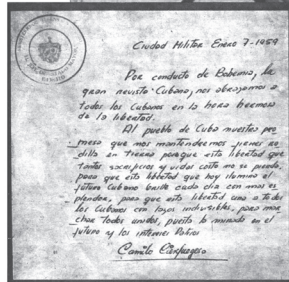 Ciudad Militar Enero 7-1959
Por conducto de Bohemia, la
gran revista Cubana, nos abrazamos a
todos los Cubanos en la hora hermosa
de la libertad.
Al pueblo de Cuba nuestra pro
mesa que nos mantendremos firmes ro
dilla en tierra porque esta libertad que
tantos sacrificios y vidas costo no se pierda,
para que esta libertad que hoy ilumina el
futuro Cubano brille cada dia con mas es
plendor, para que esta libertad una a todos
los Cubanos con lazos indivisibles, para mar
char todos unidos, puesta la mirada en el
futuro y los intereses Patrios
Camilo Cienfuegos